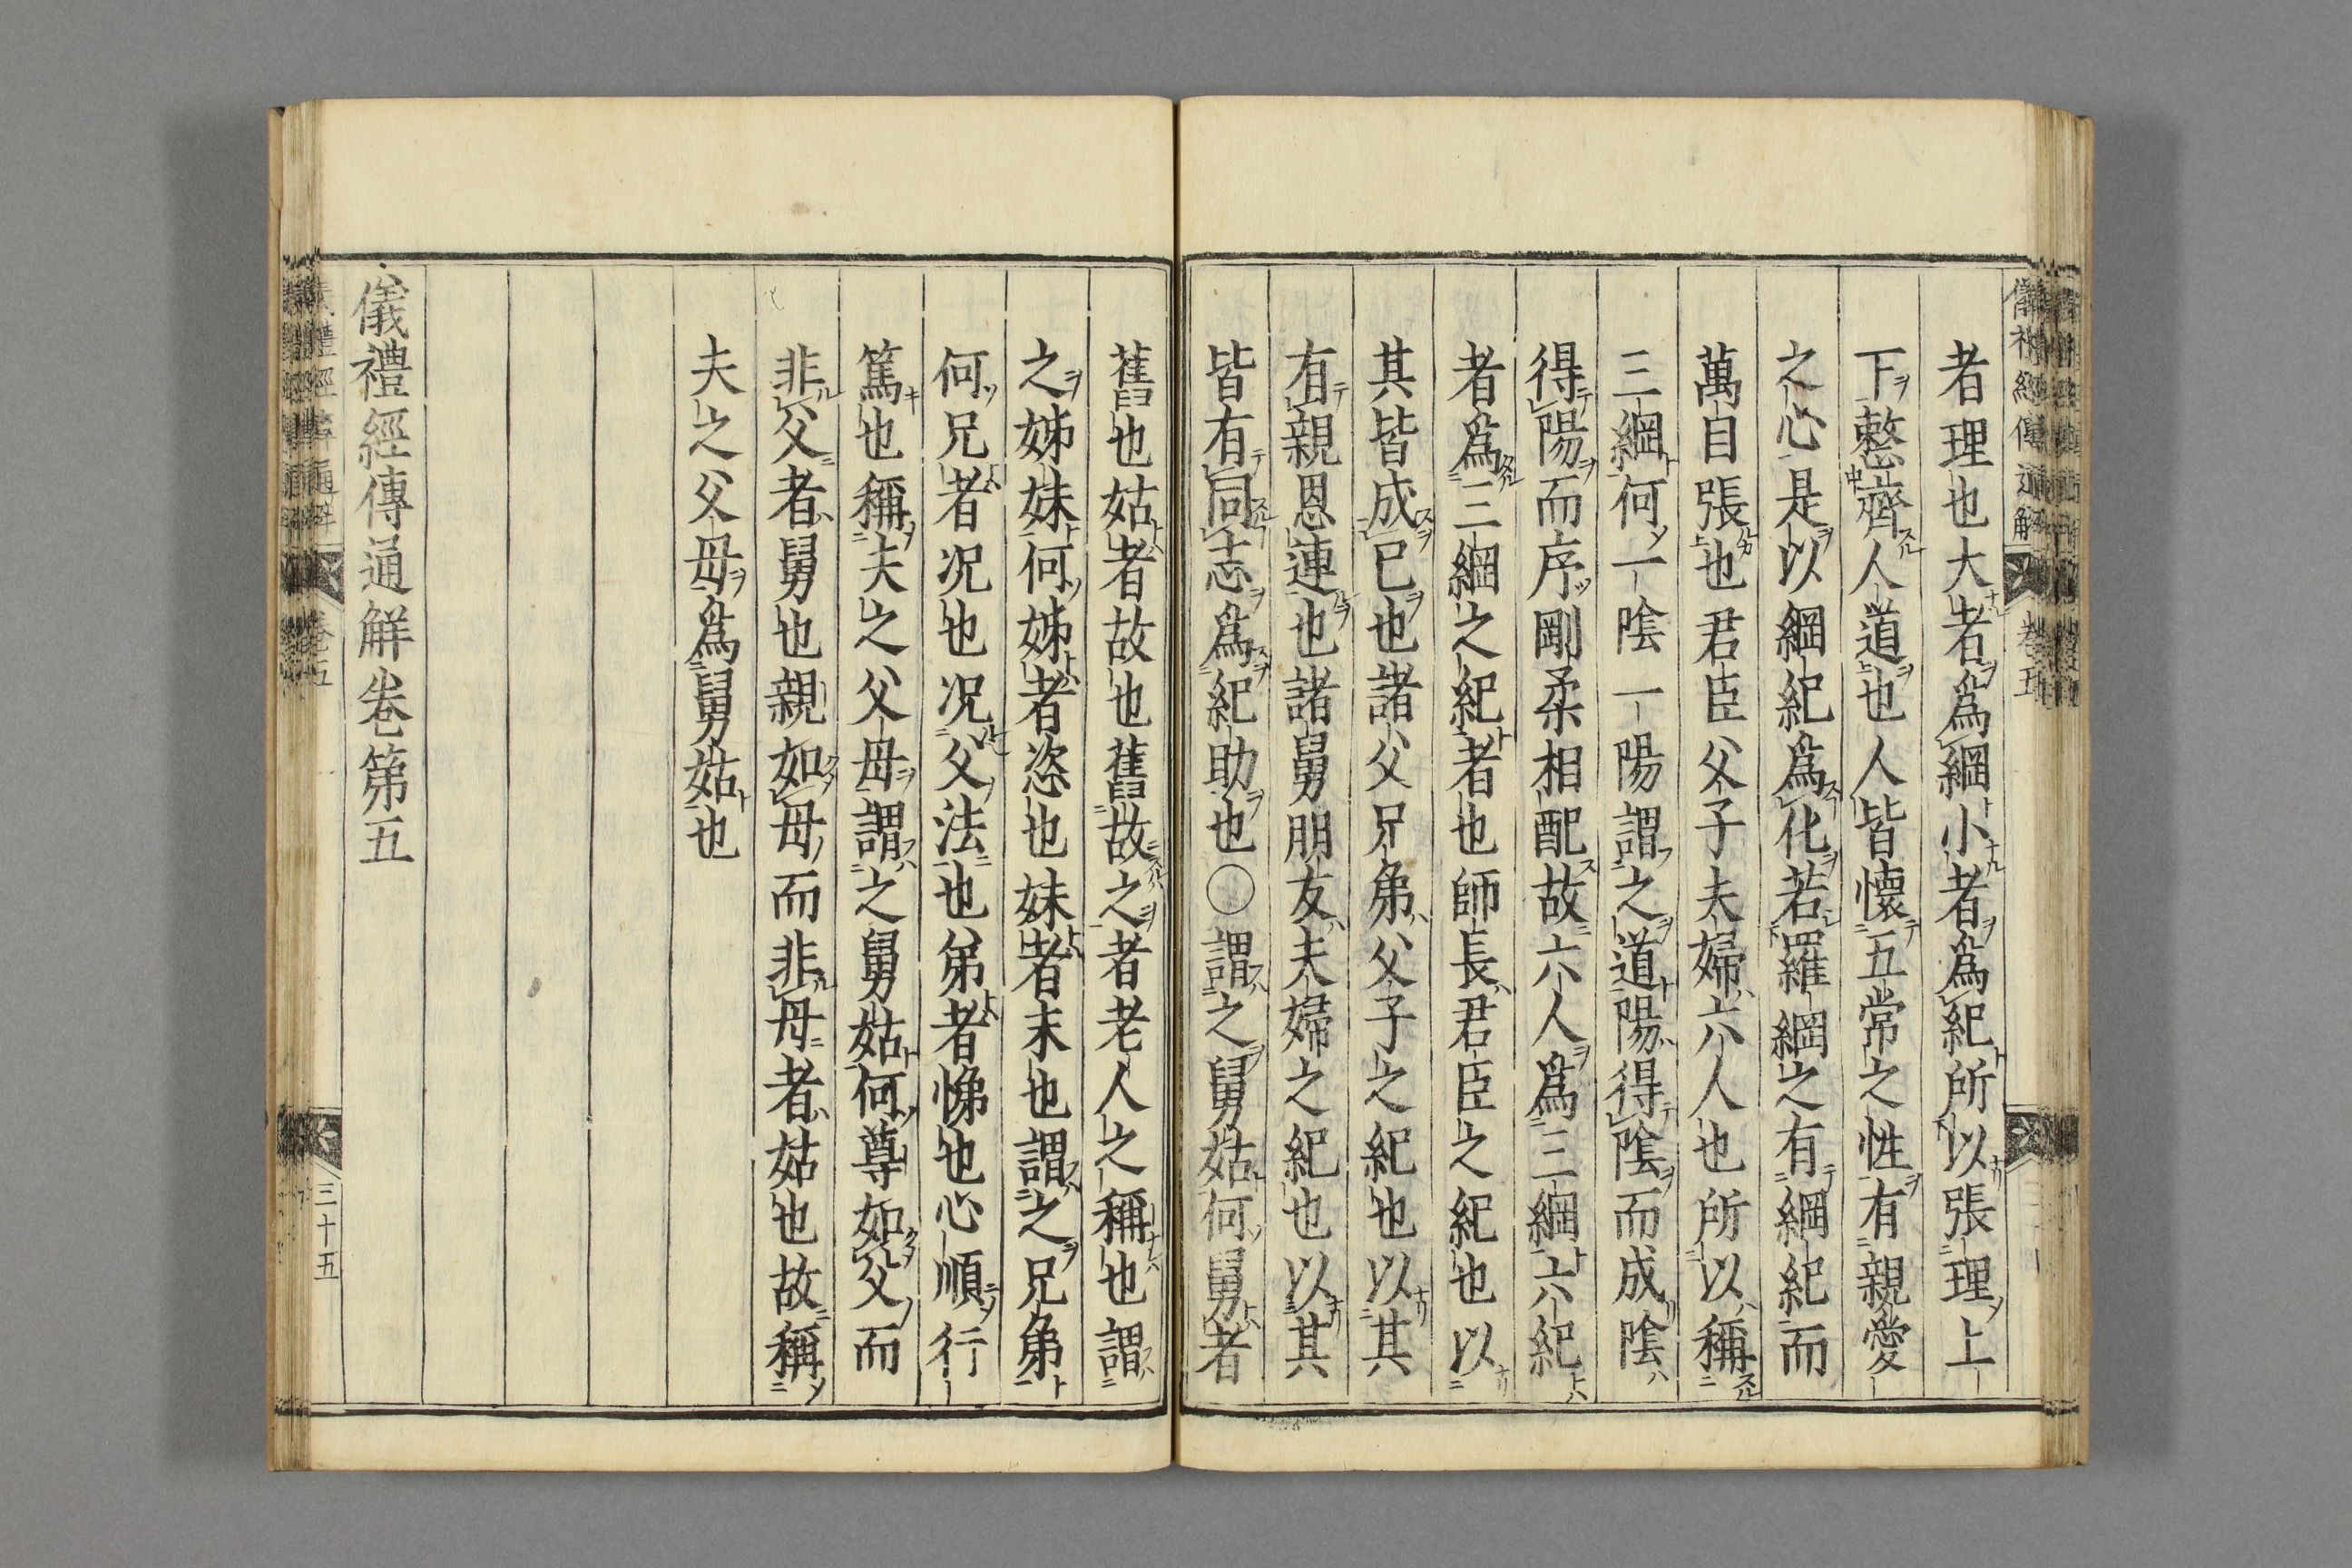 者理也大者爲綱小者爲紀所以張理上
下整齊人道也人皆懷五常之性有親愛
之心是以綱紀爲化若羅綱之有綱紀而
萬目張也君臣父子夫婦六人也所以稱
三綱何一陰一陽謂之道陽得陰而成陰
得陽而序剛柔相配故六人爲三綱六紀
者爲三綱之紀者也師長君臣之紀也以
其皆成己也諸父兄弟父子之紀也以其
有親恩連也諸舅朋友夫婦之紀也以其
皆有同志爲紀助也○謂之舅姑何舅者
舊也姑者故也舊故之者老人之稱也謂
之姊妹何姊者恣也妹者末也謂之兄弟
何兄者况也况父法也弟者悌也心順行
篤也稱夫之父母謂之舅姑何尊如父而
非父者舅也親如母而非母者姑也故稱
夫之父母爲舅姑也
儀禮經傳通解卷第五
三十五